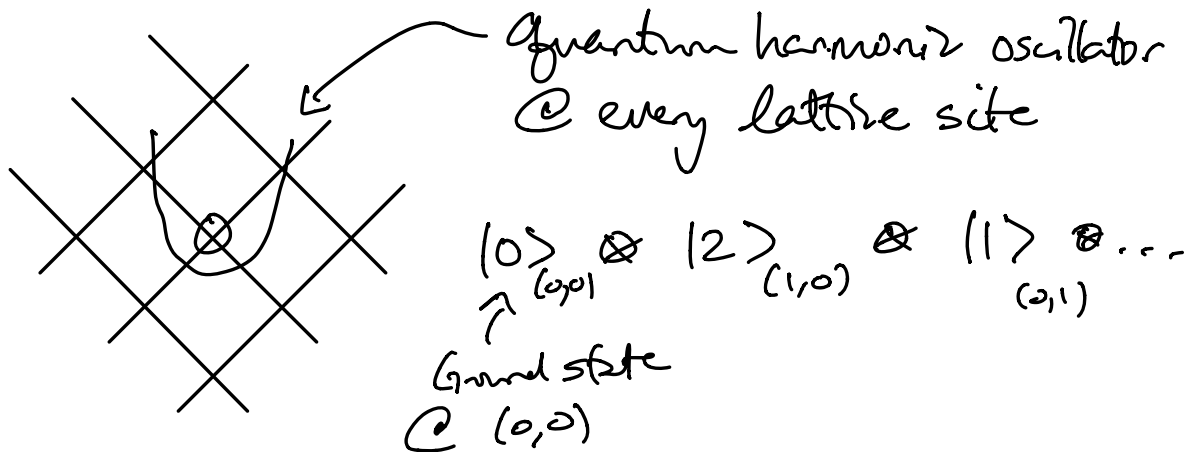 quantum harmonic oscillator
@ every lattice site
|0⟩₍₀,₀₎ ⊗ |2⟩₍₁,₀₎ ⊗ |1⟩₍₀,₁₎ ⊗ ...
Ground state
@ (0,0)